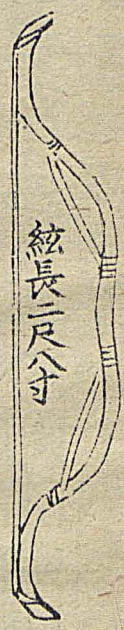 絃長二尺八寸